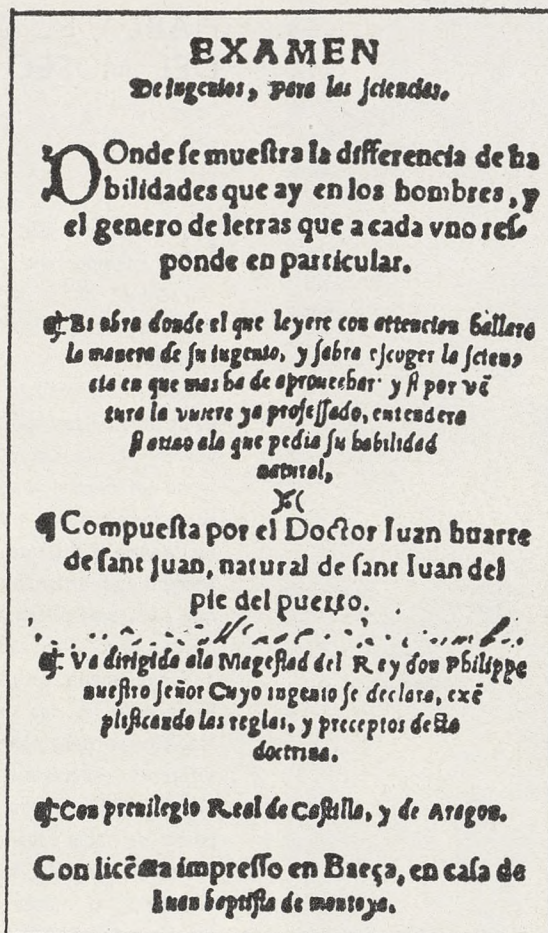 EXAMEN
De ingenios, para las sciencias.
DOnde se muestra la differencia de ha
bilidades que ay en los hombres, y
el genero de letras que a cada vno res
ponde en particular.
Es obra donde el que leyere con attencion hallara
la manera de su ingenio, y sabra escoger la scien
cia en que mas ha de aprouechar: y si por vẽ
tura la vuiere ya professado, entendera
si atino ala que pedia su habilidad
natural,
¶ Compuesta por el Doctor Iuan huarte
de sant Juan, natural de sant Iuan del
pie del puerto.
Va dirigida ala Magestad del Rey don Philippe
nuestro señor Cuyo ingenio se declara, exẽ
plificando las reglas, y preceptos desta
doctrina.
Con preuilegio Real de Castilla, y de Aragon.
Con licẽcia impresso en Baeça, en casa de
Iuan baptista de montoya.